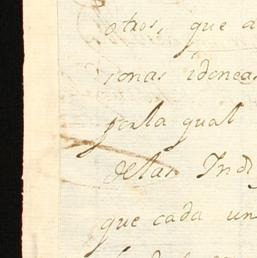 otros, que a
sonas idoneas
para la qual
delas Indi
que cada un